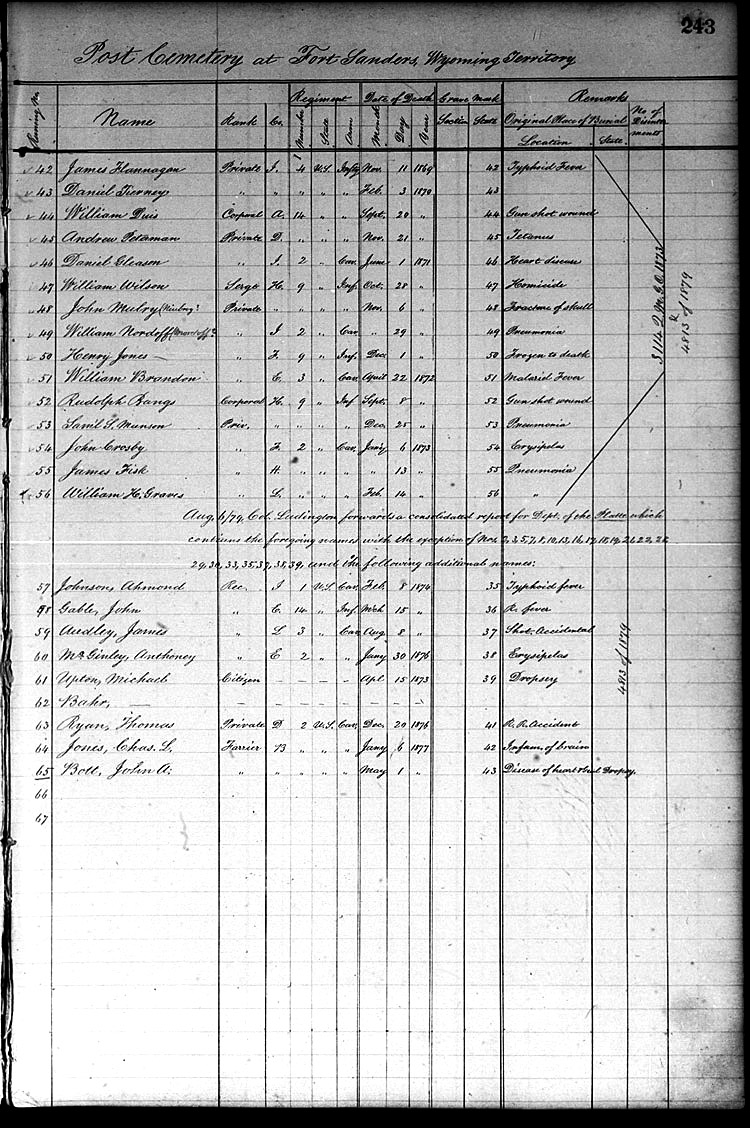 243
Post Cemetery at Fort Sanders, Wyoming Territory
Regiment Date of Death Grave Mark Remarks
Name Rank Co. Number State Arm Month Day Year Section State Original Place of Burial No of Disinterments
Location State
42 James Flannagan Private I. 4 U.S. Infty Nov. 11 1869 42 Typhoid Fever
43 Daniel Tierney " " " " " Feb. 3 1870 43
44 William Duis Corporal A. 14 " " Sept. 20 " 44 Gun shot wound
45 Andrew Petzman Private D. " " " Nov. 21 " 45 Tetanus
46 Daniel Gleason " I. 2 " Cav. June 1 1871 46 Heart disease
47 William Wilson Serge H. 9 " Inf. Oct. 28 " 47 Homicide
48 John Mulry Private " " " " Nov. 6 " 48 Fracture of skull
49 William Nordoff " I 2 " Cav " 29 " 49 Pneumonia
50 Henry Jones — " F. 9 " Inf. Dec. 1 " 50 Frozen to death
51 William Brandon " E. 3 " Cav. April 22 1872 51 Malarid Fever
52 Rudolph Bangs Corporal H. 9 " Inf Sept. 8 " 52 Gun shot wound
53 Munson Priv. " " " " Dec. 25 " 53 Pneumonia
54 John Crosby " F. 2 " Cav. Jan'y 6 1873 54 Erysipelas
55 James Fisk " H. " " " " 13 " 55 Pneumonia
56 William H. Graves " L. " " " Feb. 14 " 56 "
4813 of 1879
Aug. 6/79, Col. Ludington forwards a consolidated report for Dept. of the Platte which
contains the foregoing names with the exception of Nos. 2, 3, 5, 7, 8, 10, 13, 16, 17, 18, 19,
29, 30, 33, 35, 37, 38, 39, and of the following additional names:
57 Johnson, Ahmond Rec. I 1 U.S. Cav. Feb. 8 1874 35 Typhoid fever
58 Gable, John " C. 14 " Inf. Mch 15 " 36 R. fever
59 Audley, James " L 3 " Cav. Aug. 8 " 37 Shot-Accidental
60 McGinley, Anthoney " E 2 " " Jany 30 1876 38 Erysipelas
61 Upton, Michael Citizen — — — — Apl. 15 1873 39 Dropsy
62 Bahr, — — — — —
63 Ryan, Thomas Private D 2 U.S. Cav. Dec. 29 1876 41 R. R. Accident
64 Jones, Chas. L. Farrier B " " " Jany 6 1877 42 Inflam. of brain
65 Bott, John A. " " " " " May 1 " 43 Disease of heart & Dropsy.
4813 of 1879
66
67